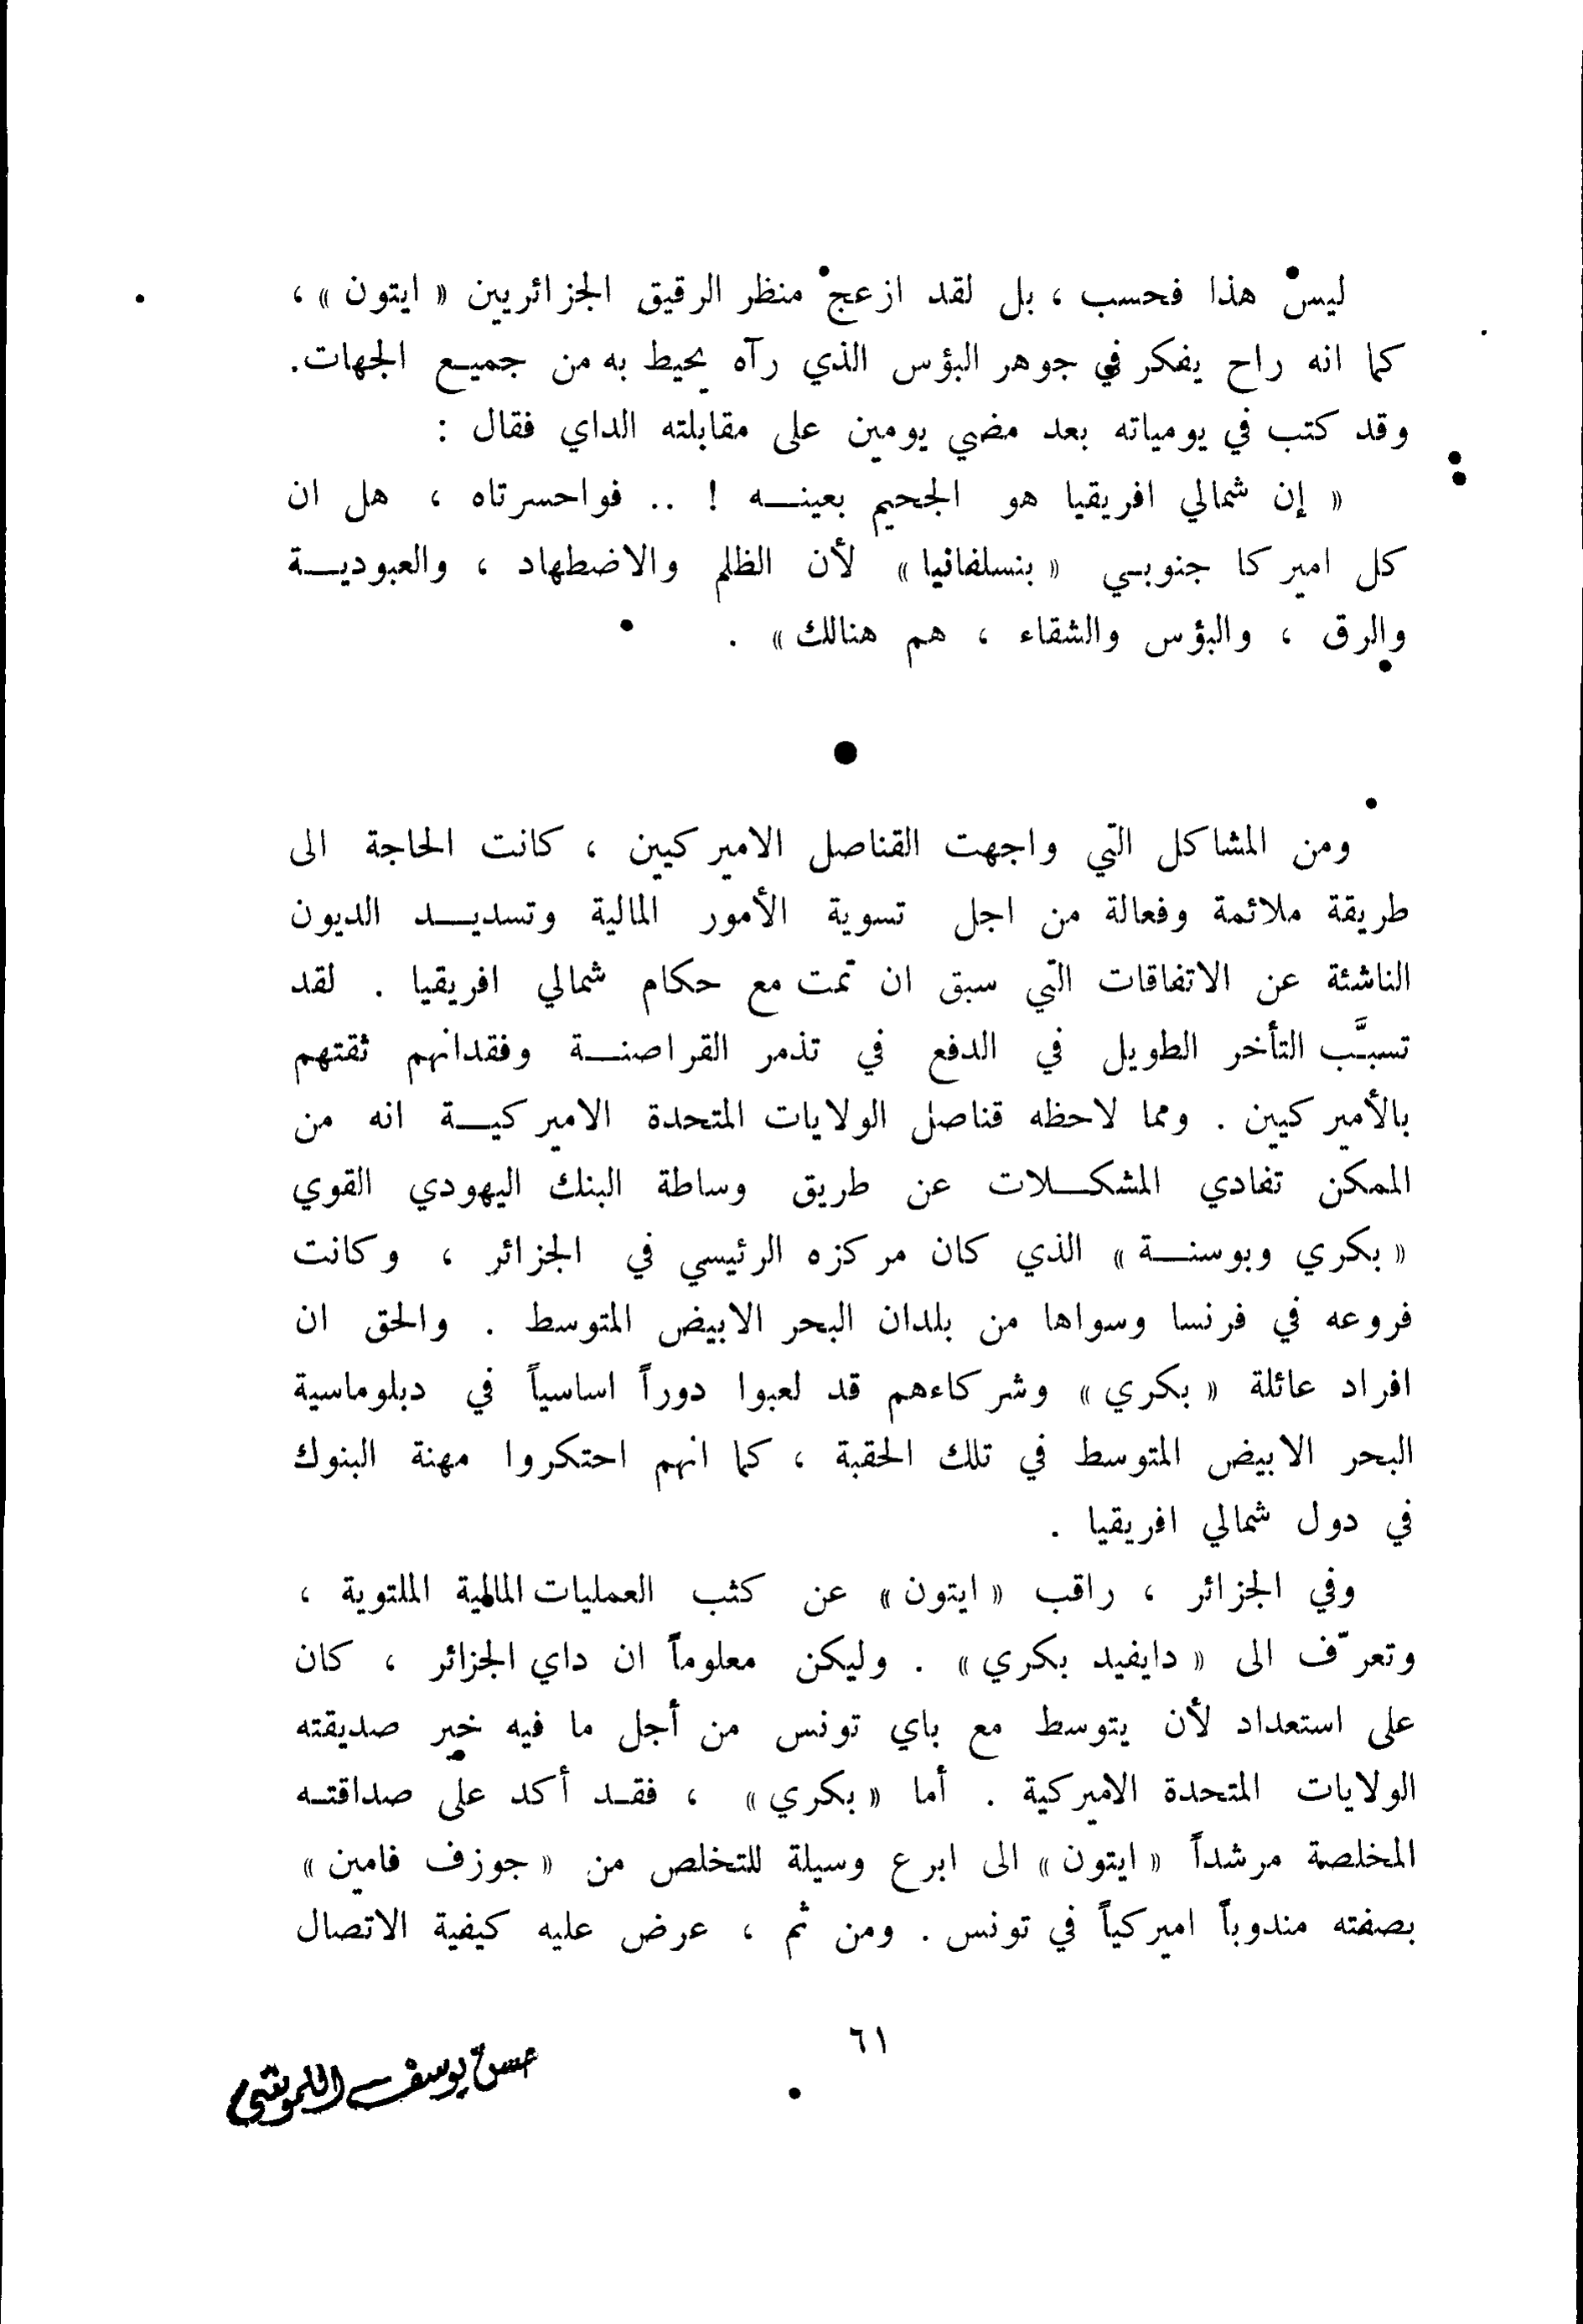 ليس هذا فحسب ، بل لقد ازعج منظر الرقيق الجزائريين « ايتون » ،
كما انه راح يفكر في جوهر البؤس الذي رآه يحيط به من جميع الجهات.
وقد كتب في يومياته بعد مضي يومين على مقابلته الداي فقال :
« إن شمالي افريقيا هو الجحيم بعينه ! .. فواحسرتاه ، هل ان
كل اميركا جنوبي « بنسلفانيا » لأن الظلم والاضطهاد ، والعبودية
والرق ، والبؤس والشقاء ، هم هنالك » .
●
ومن المشاكل التي واجهت القناصل الاميركيين ، كانت الحاجة الى
طريقة ملائمة وفعالة من اجل تسوية الأمور المالية وتسديد الديون
الناشئة عن الاتفاقات التي سبق ان تمت مع حكام شمالي افريقيا . لقد
تسبَّب التأخر الطويل في الدفع في تذمر القراصنة وفقدانهم ثقتهم
بالأميركيين . ومما لاحظه قناصل الولايات المتحدة الاميركية انه من
الممكن تفادي المشكلات عن طريق وساطة البنك اليهودي القوي
« بكري وبوسنة » الذي كان مركزه الرئيسي في الجزائر ، وكانت
فروعه في فرنسا وسواها من بلدان البحر الابيض المتوسط . والحق ان
افراد عائلة « بكري » وشركاءهم قد لعبوا دوراً اساسياً في دبلوماسية
البحر الابيض المتوسط في تلك الحقبة ، كما انهم احتكروا مهنة البنوك
في دول شمالي افريقيا .
وفي الجزائر ، راقب « ايتون » عن كثب العمليات المالية الملتوية ،
وتعرّف الى « دايفيد بكري » . وليكن معلوماً ان داي الجزائر ، كان
على استعداد لأن يتوسط مع باي تونس من أجل ما فيه خير صديقته
الولايات المتحدة الاميركية . أما « بكري » ، فقد أكد على صداقته
المخلصة مرشداً « ايتون » الى ابرع وسيلة للتخلص من « جوزف فامين »
بصفته مندوباً اميركياً في تونس . ومن ثم ، عرض عليه كيفية الاتصال
٦١
حسن يوسف